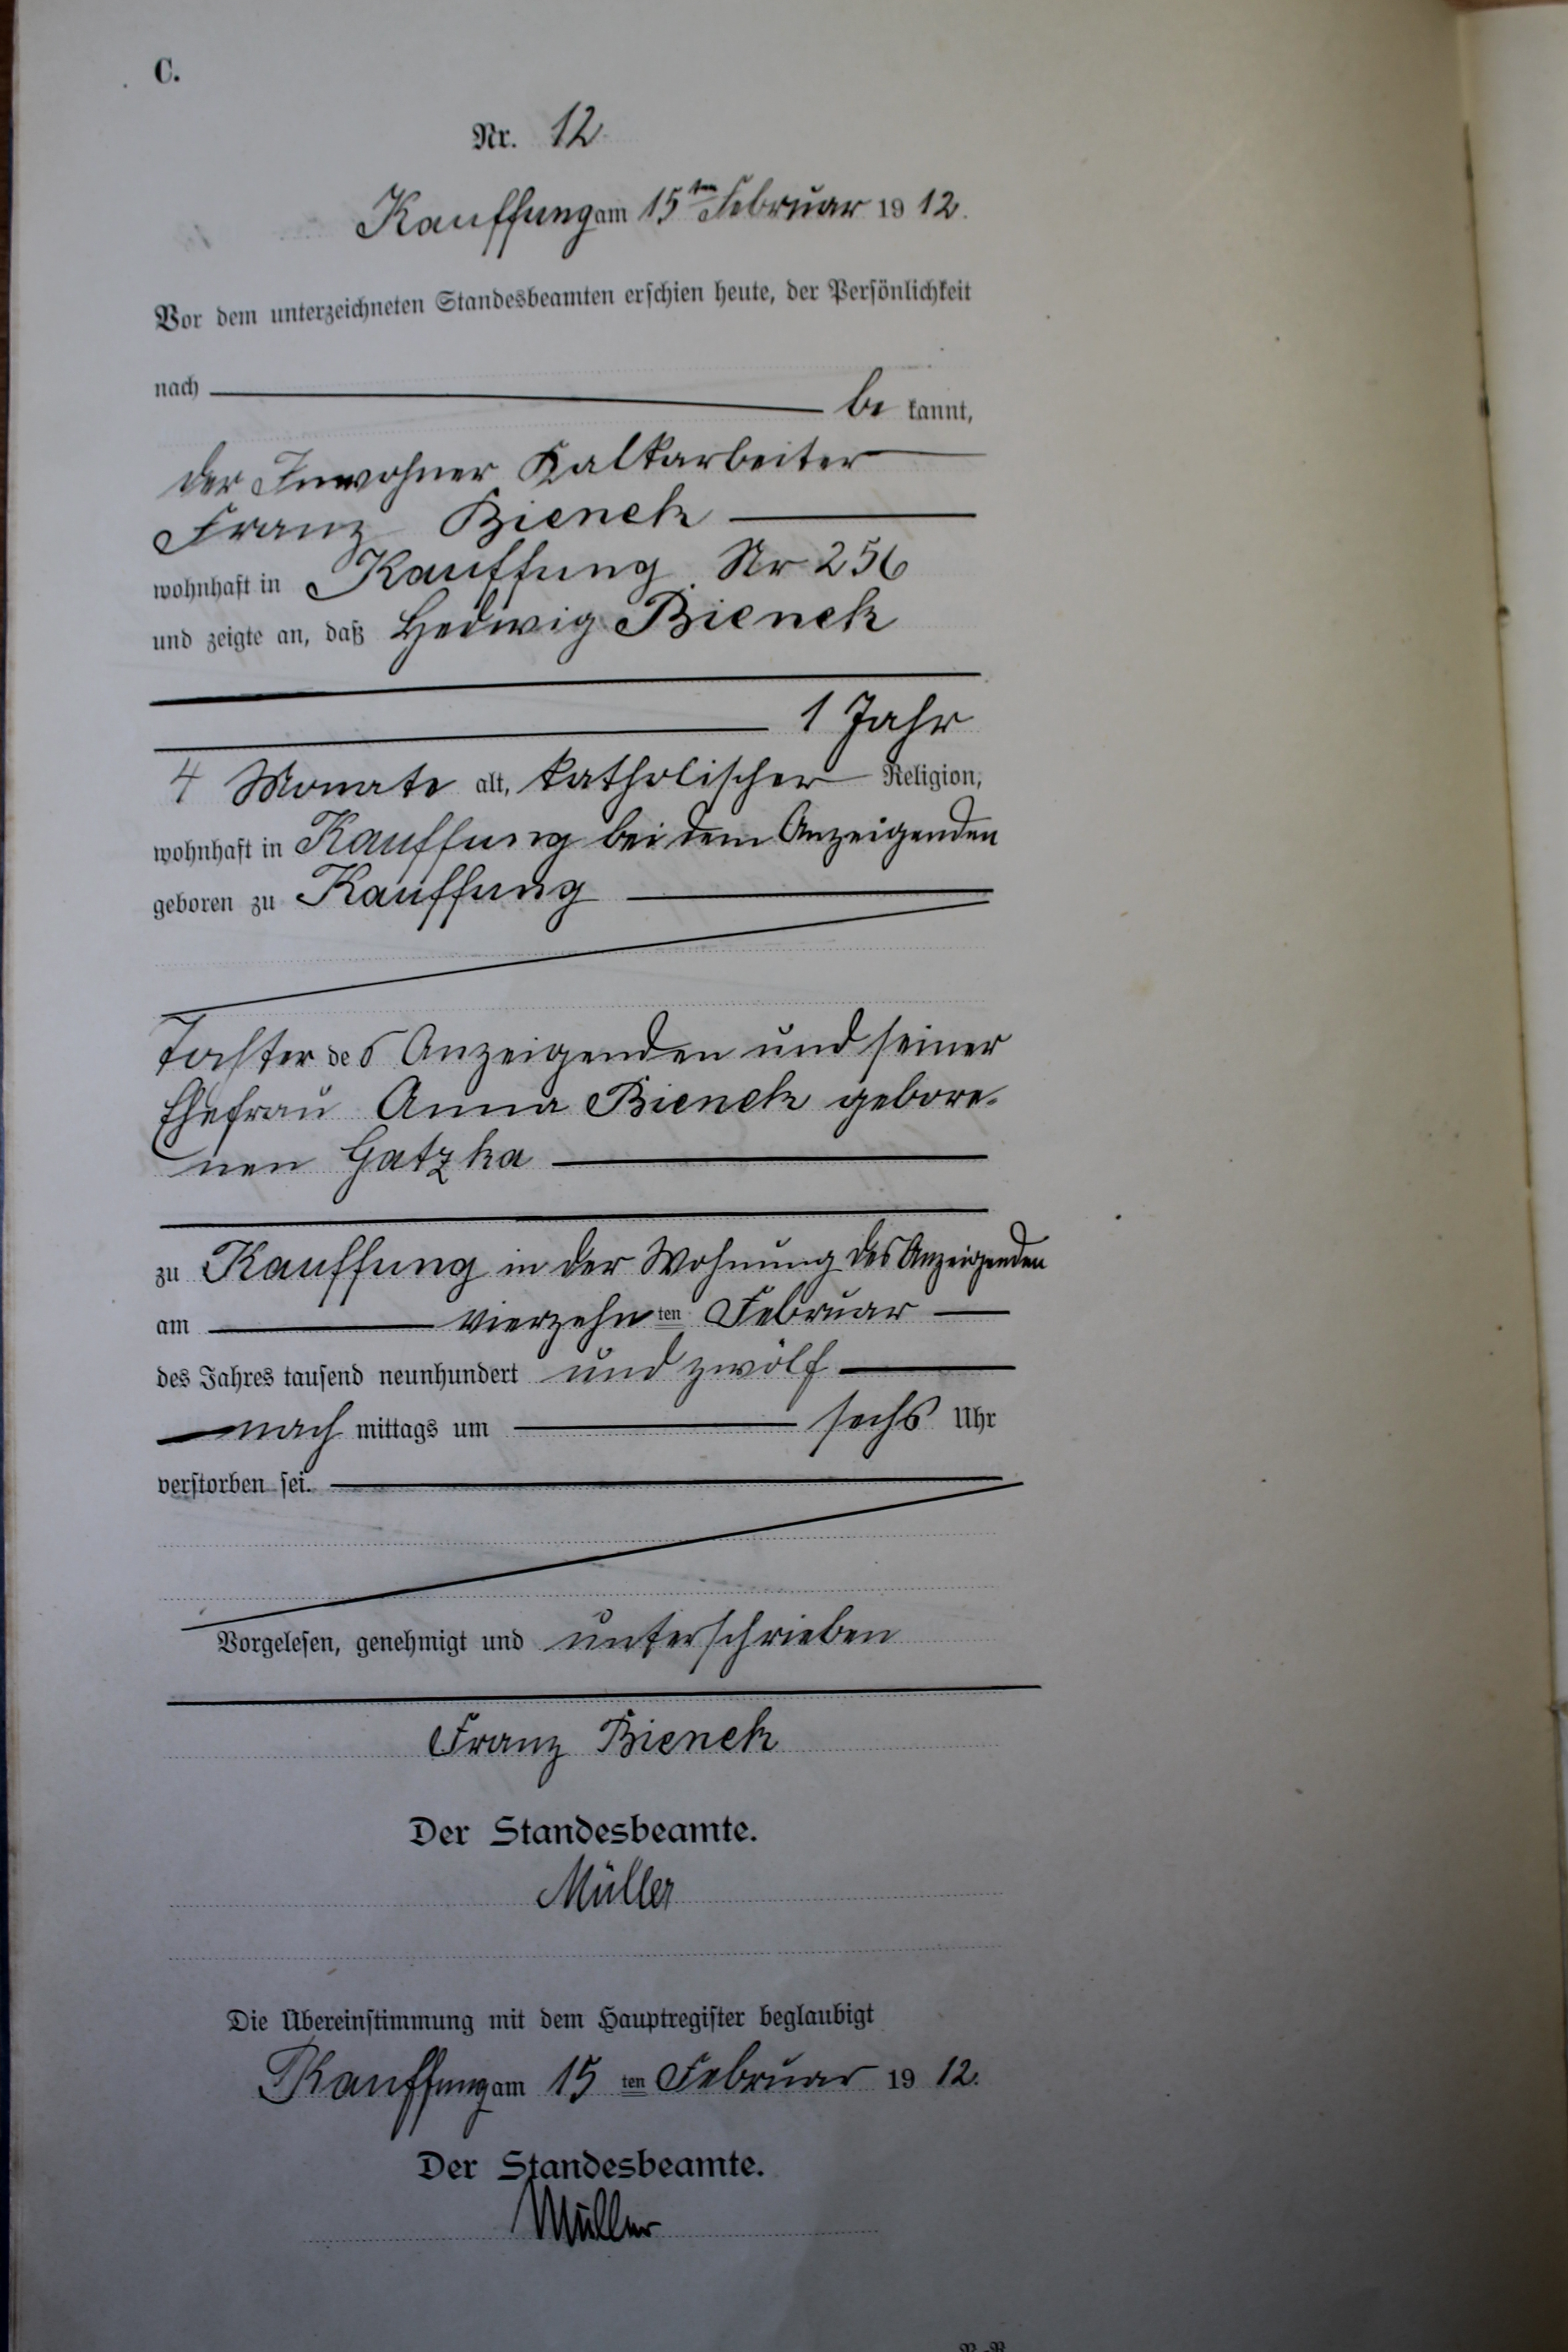 C.
Nr. 12
Kauffung am 15ten Februar 1912.
Vor dem unterzeichneten Standesbeamten erschien heute, der Persönlichkeit
nach be kannt,
der Inwohner Kalkarbeiter
Franz Bienek
wohnhaft in Kauffung Nr 256
und zeigte an, daß Hedwig Bienek
1 Jahr
4 Monate alt, katholischer Religion,
wohnhaft in Kauffung bei dem Anzeigenden
geboren zu Kauffung
Tochter des Anzeigenden und seiner
Ehefrau Anna Bienek gebore-
nen Gatzka
zu Kauffung in der Wohnung des Anzeigenden
am vierzehn ten Februar
des Jahres tausend neunhundert und zwölf
nach mittags um sechs Uhr
verstorben sei.
Vorgelesen, genehmigt und unterschrieben
Franz Bienek
Der Standesbeamte.
Müller
Die Übereinstimmung mit dem Hauptregister beglaubigt
Kauffung am 15 ten Februar 19 12.
Der Standesbeamte.
Müller